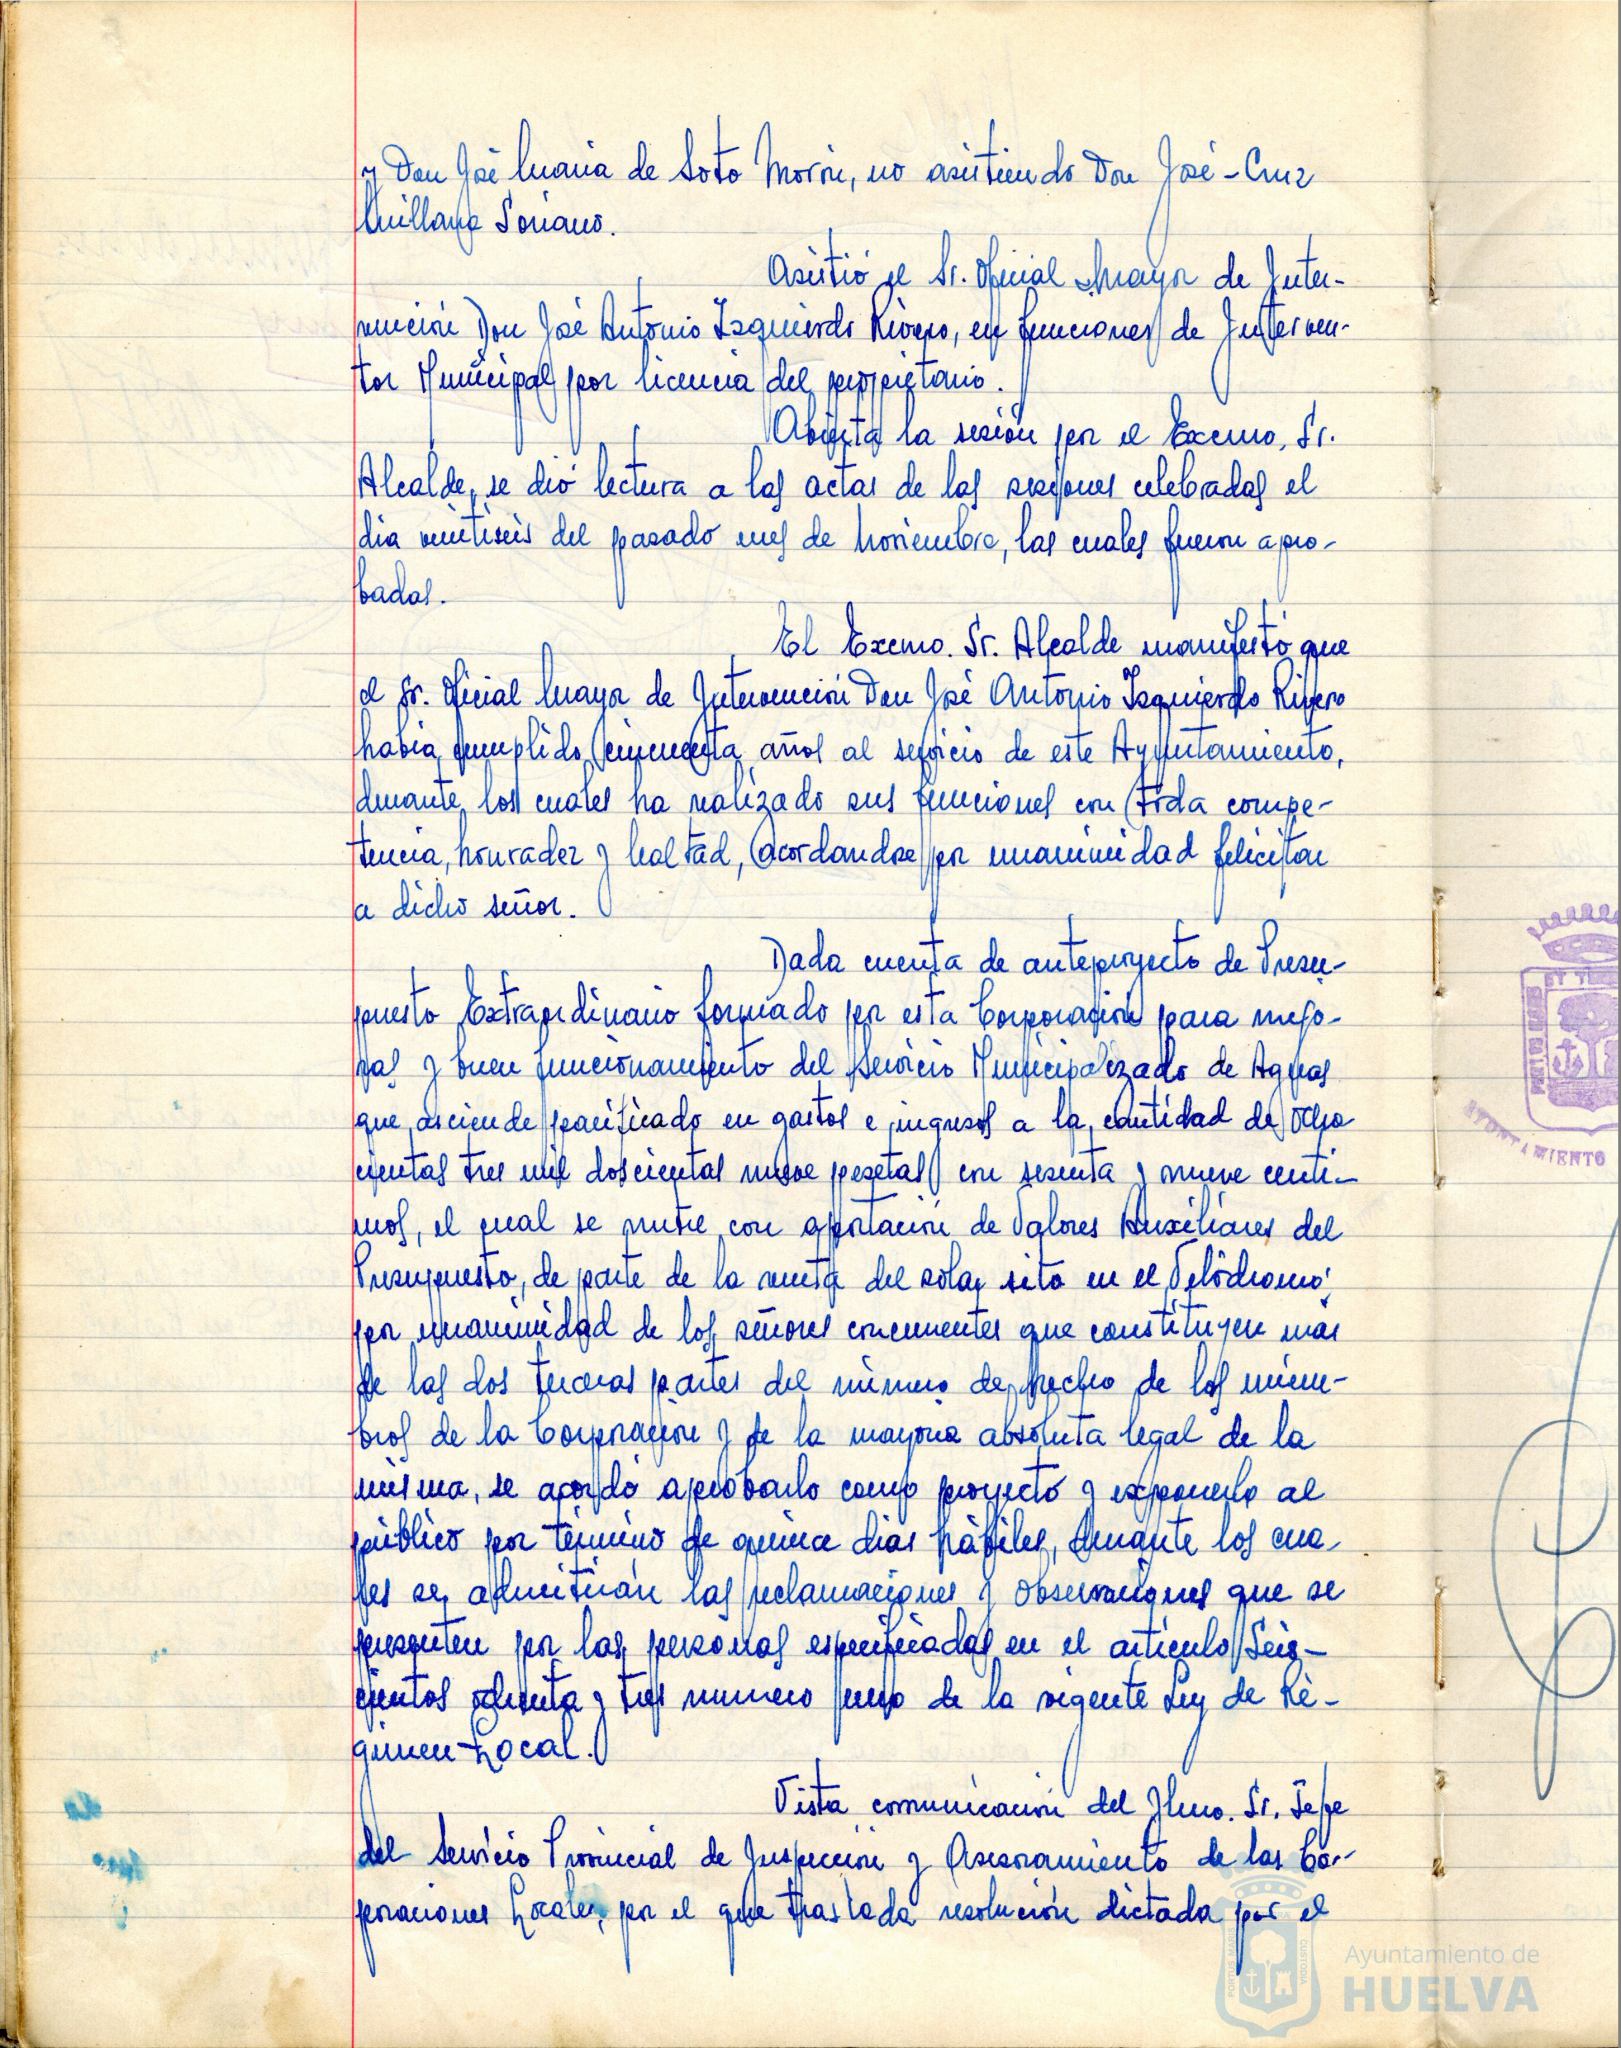 y Don José Maria de Soto Morón, no asistiendo Don José-Cruz
Quillana Soriano.
Asistió el Sr. Oficial Mayor de Inter-
vención Don José Antonio Izquierdo Rivero, en funciones de Interven-
tor Municipal por licencia del propietario.
Abierta la sesión por el Excmo. Sr.
Alcalde, se dió lectura a las actas de las sesiones celebradas el
dia veintiseis del pasado mes de Noviembre, las cuales fueron apro-
badas.
El Excmo. Sr. Alcalde manifestó que
el Sr. Oficial Mayor de Intervención Don José Antonio Izquierdo Rivero
habia cumplido cincuenta años al servicio de este Ayuntamiento,
durante los cuales ha realizado sus funciones con toda compe-
tencia, honradez y lealtad, acordandose por unanimidad felicitar
a dicho señor.
Dada cuenta de anteproyecto de Presu-
puesto Extraordinario formado por esta Corporación para mejo-
ras y buen funcionamiento del Servicio Municipalizado de Aguas
que asciende pacificado en gastos e ingresos a la cantidad de ocho
cientas tres mil doscientas nueve pesetas con sesenta y nueve centi-
mos, el cual se nutre con aportación de Valores Auxiliares del
Presupuesto, de parte de la venta del solar sito en el Velódromo;
por unanimidad de los señores concurrentes que constituyen más
de las dos terceras partes del número de hecho de los miem-
bros de la Corporación y de la mayoria absoluta legal de la
misma, se acordó aprobarlo como proyecto y exponerlo al
público por término de quince dias hábiles, durante los cua-
les se admitirán las reclamaciones y observaciones que se
presenten por las personas especificadas en el articulo Seis-
cientos ochenta y tres numero uno de la vigente Ley de Ré-
gimen Local.
Vista comunicación del Ilmo. Sr. Jefe
del Servicio Provincial de Inspección y Asesoramiento de las Cor-
poraciones Locales, por el que traslada resolución dictada por el
AYUNTAMIENTO
Ayuntamiento de
HUELVA